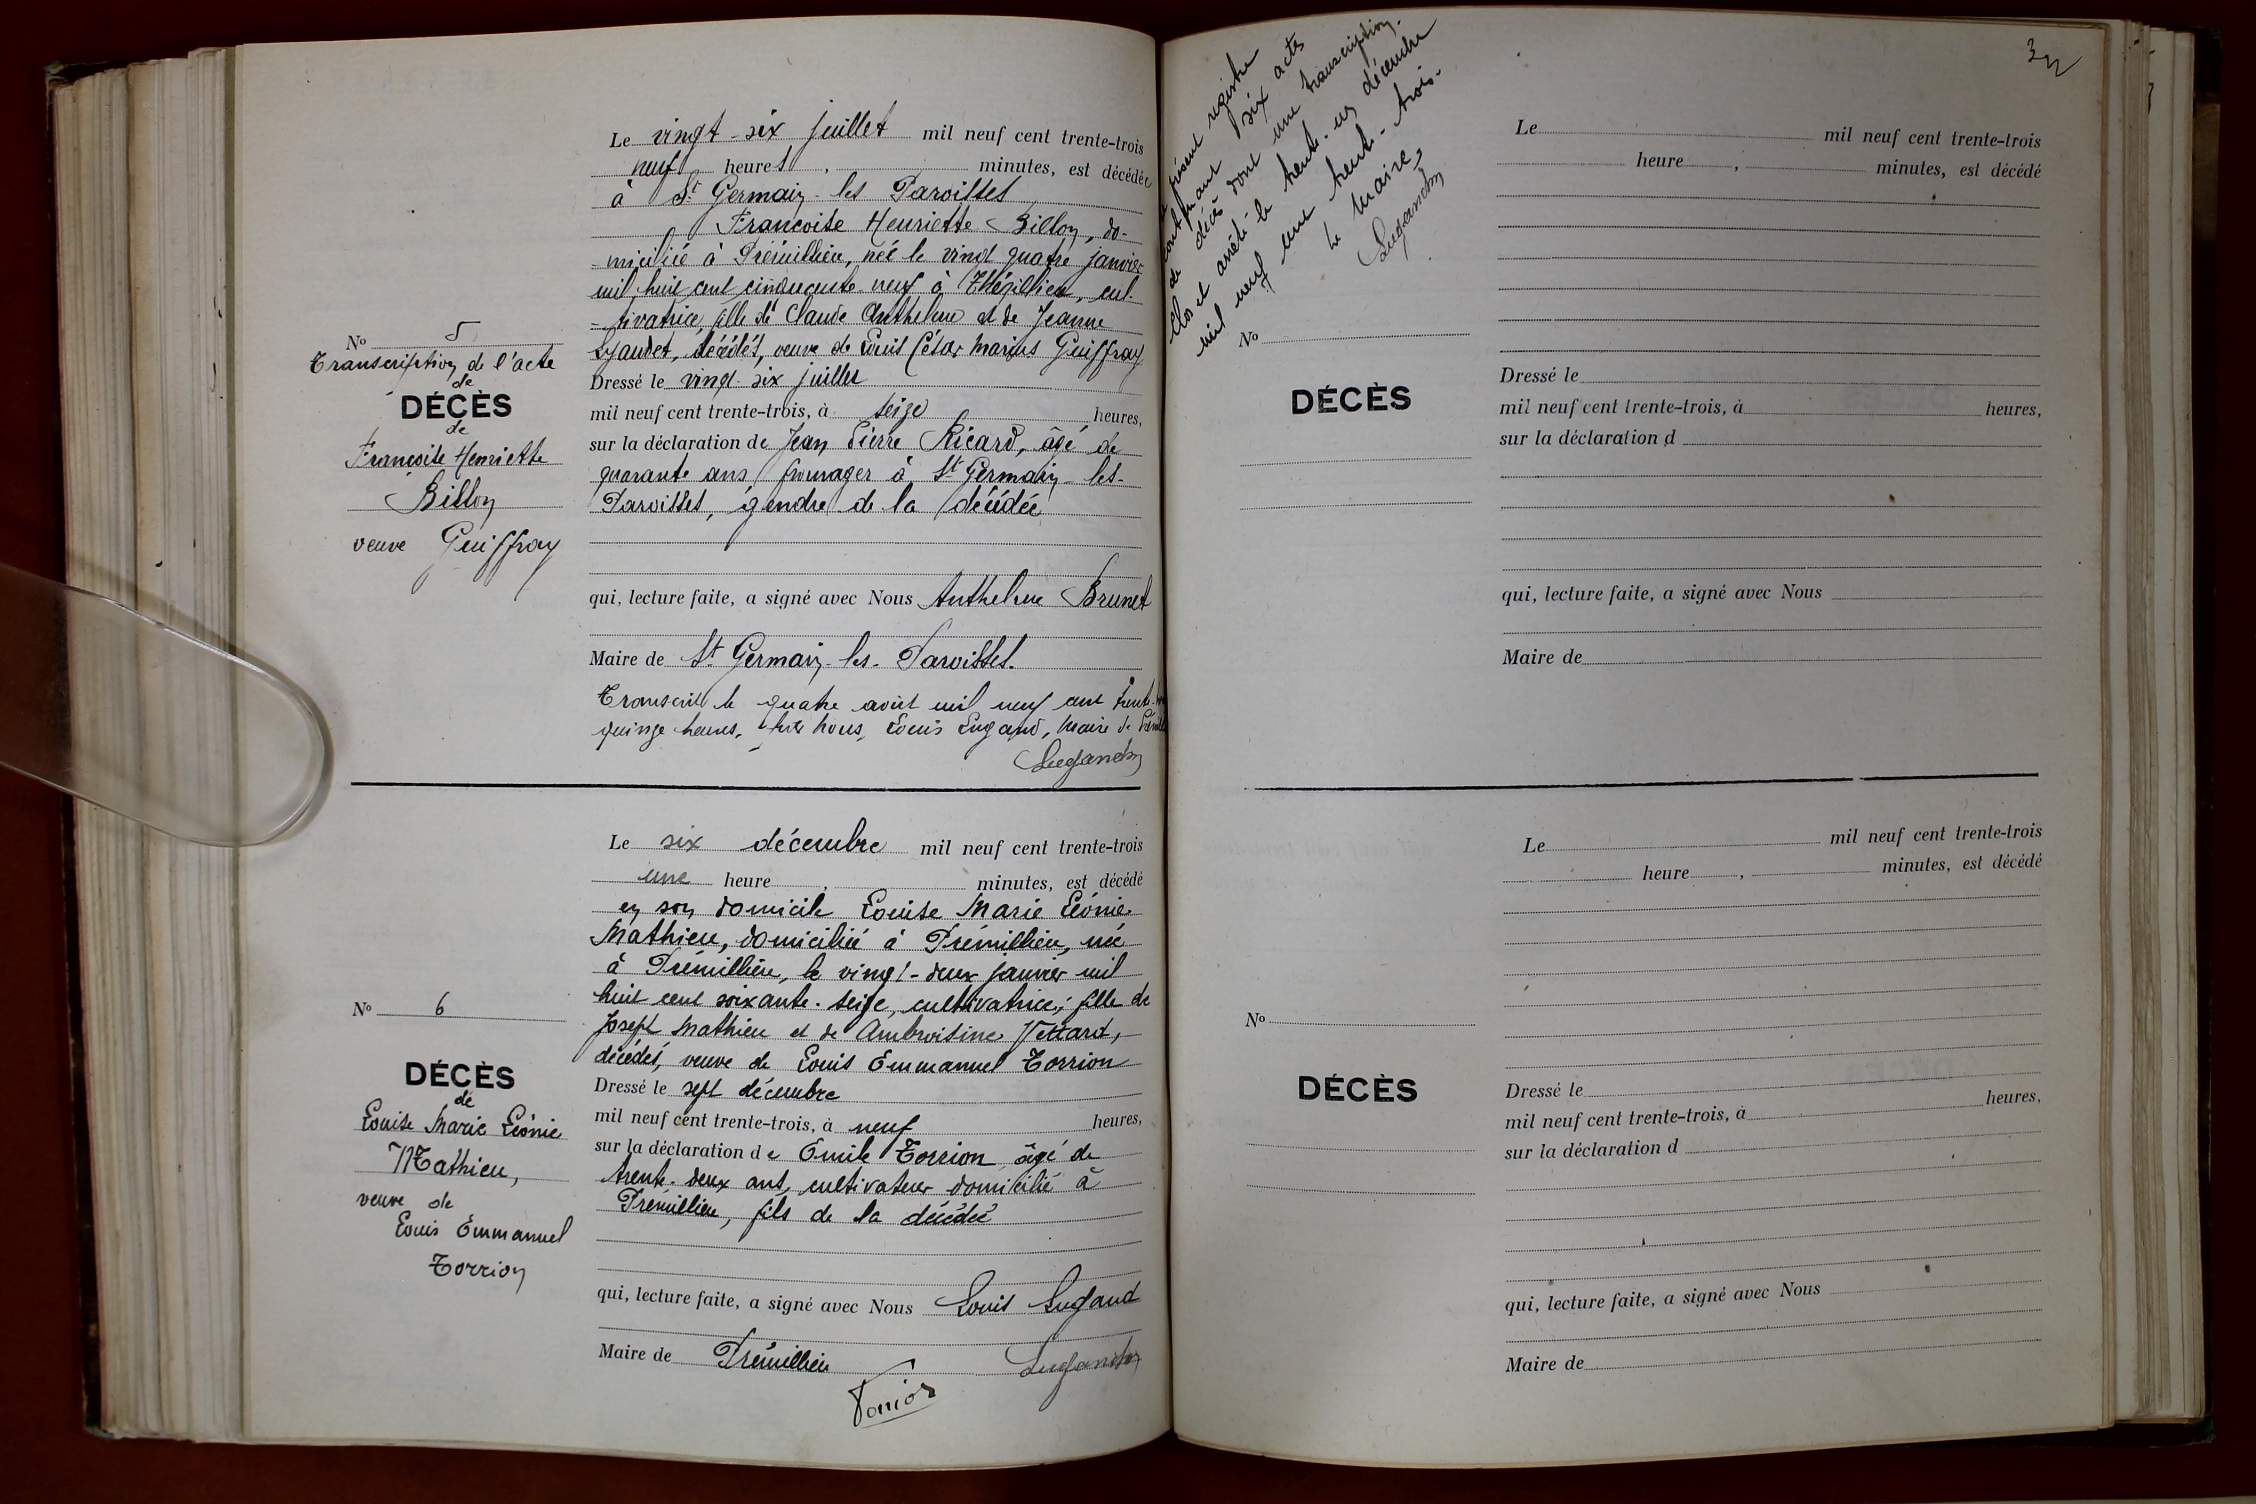 Le vingt-six juillet mil neuf cent trente-trois
neuf heures , minutes, est décédée
à St Germain-les Paroisses
Françoise Henriette Billon, do-
miciliée à Prémillieu, née le vingt quatre janvier
mil huit cent cinquante neuf à Thézillieu, cul-
tivatrice, fille de Claude Anthelme et de Jeanne
décédés, veuve de Louis César Marius Guiffray
Dressé le vingt-six juillet
mil neuf cent trente-trois, à seize heures,
sur la déclaration de Jean Pierre Ricard, âgé de
quarante ans fromager à St Germain-les-
Paroisses, gendre de la décédée
qui, lecture faite, a signé avec Nous Anthelme Brunet
Maire de St Germain-les-Paroisses.
Transcrit le quatre août mil neuf cent trente-
quinze heures, par Nous, Louis Lugand, Maire de
Lugand
No 5
Transcription de l'acte
de
DÉCÈS
de
Françoise Henriette
Billon
veuve Guiffray
Le six décembre mil neuf cent trente-trois
une heure , minutes, est décédé
en son domicile Louise Marie Léonie
Mathieu, domiciliée à Prémillieu, née
à Prémillieu, le vingt-deux janvier mil
huit cent soixante-seize, cultivatrice, fille de
Joseph Mathieu et de Ambroisine Vettard,
décédés, veuve de Louis Emmanuel Torrion
Dressé le sept décembre
mil neuf cent trente-trois, à neuf heures,
sur la déclaration de Emile Torrion âgé de
trente-deux ans, cultivateur domicilié à
Prémillieu, fils de la décédée
qui, lecture faite, a signé avec Nous Louis Lugand
Maire de Prémillieu Lugand
No 6
DÉCÈS
de
Louise Marie Léonie
Mathieu,
veuve de
Louis Emmanuel
Torrion
32
présent registre
contenant six actes
de décès dont une transcription.
Clos et arrêté le trente-un décembre
mil neuf cent trente-trois.
Le Maire,
Lugand
Le mil neuf cent trente-trois
heure , minutes, est décédé
No
DÉCÈS
Dressé le
mil neuf cent trente-trois, à heures,
sur la déclaration d
qui, lecture faite, a signé avec Nous
Maire de
Le mil neuf cent trente-trois
heure , minutes, est décédé
No
DÉCÈS
Dressé le
mil neuf cent trente-trois, à heures,
sur la déclaration d
qui, lecture faite, a signé avec Nous
Maire de